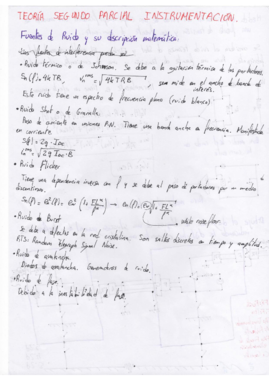 TEORÍA SEGUNDO PARCIAL INSTRUMENTACION.
Fuentes de Ruido y su descripción matemática.
Las fuentes de interferencia pueden ser
• Ruido térmico o de Johnson. Se debe a la agitación térmica de los portadores.
Sn(f) = 4KTR Vrms = √4KTRB, sea medido en el ancho de banda de
interés.
Este ruido tiene un espectro de frecuencia plano (ruido blanco)
• Ruido Shot o de Granalla.
Paso de corriente en uniones P.N. Tiene una banda ancha de frecuencia. Manifestado
en corriente.
S(f) = 2q·Idc
irms = √2q Idc·B
• Ruido Flicker
Tiene una dependencia inversa con f y se debe al paso de portadores por un medio
discontinuo.
white noise floor
• Ruido de Burst
Se debe a defectos en la red cristalina. Son saltos discretos en tiempo y amplitud.
RTS: Random Telegraph Signal Noise.
• Ruido de avalancha.
Diodos de avalancha. Generadores de ruido.
• Ruido de fase.
Debido a la inestabilidad de fase.